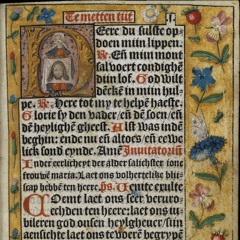 Te metten tijt
Heere du sulste op
doen mijn lippen.
R. En mijn mont
sal voert condighē
dijn lof. God wilt
dēckē in mijn hul-
pe. R. Here tot my te helpē haeste.
Glorie sy den vader/ eñ dē soen/ eñ
dē heylighē gheest. Alst was inde
beghin/ ende nu eñ altoes/ eñ eewe
lick sond eynde. Amē Inuitatoriū
In der eerlicheyt der alder salichster ionc
frouwē maria. Laet ons volhertelike blij
scap hebbē tē heere. ps. Venite exulte
Coemt laet ons seer verue-
echden ten heere: laet ons iu-
bileren god onsen heylgheuer/ sijn
aensichte laet ons te voerē begrypē